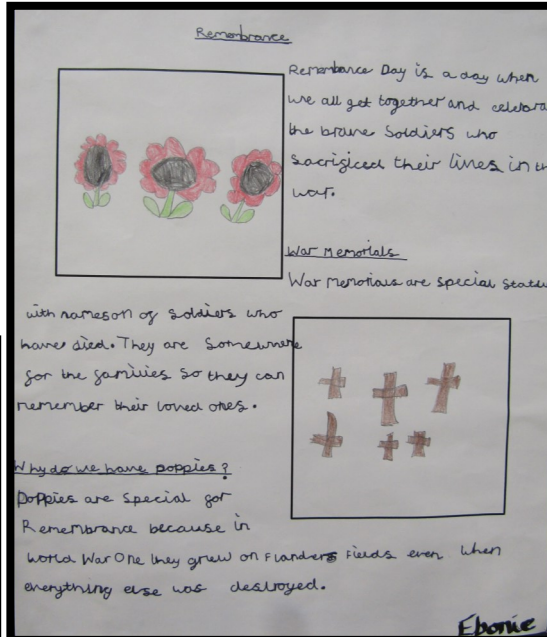 Remembrance
Remembance Day is a day when
we all get together and celebra
the brave Soldiers who
sacrificed their lives in th
war.
War Memorials
War Memorials are special statu
with names on of soldiers who
have died. They are somewhere
for the families so they can
remember their loved ones.
Why do we have poppies?
Poppies are special for
Remembrance because in
world War One they grew on Flanders Fields even when
everything else was destroyed.
Ebonie